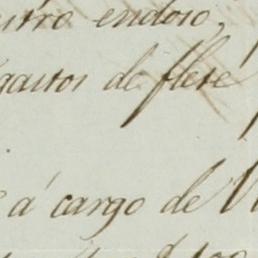 endoso,
gastos de flete
á cargo de